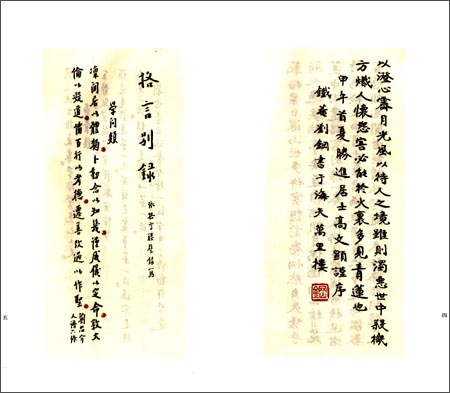 以澄心霽月光風以待人之境雖則濁惡世中殺機
方熾人懷怨害必能於火裏多見青蓮也
甲午首夏勝進居士高文顯謹序
鐵菴劉鋼書于海天萬里樓
四
格言別錄
依格言聯璧錄寫
學問類
凜閒居以體獨卜動念以知幾謹威儀以定命敦大
倫以凝道備百行以考德遷善改過以作聖
劉忠介
人譜六條
五